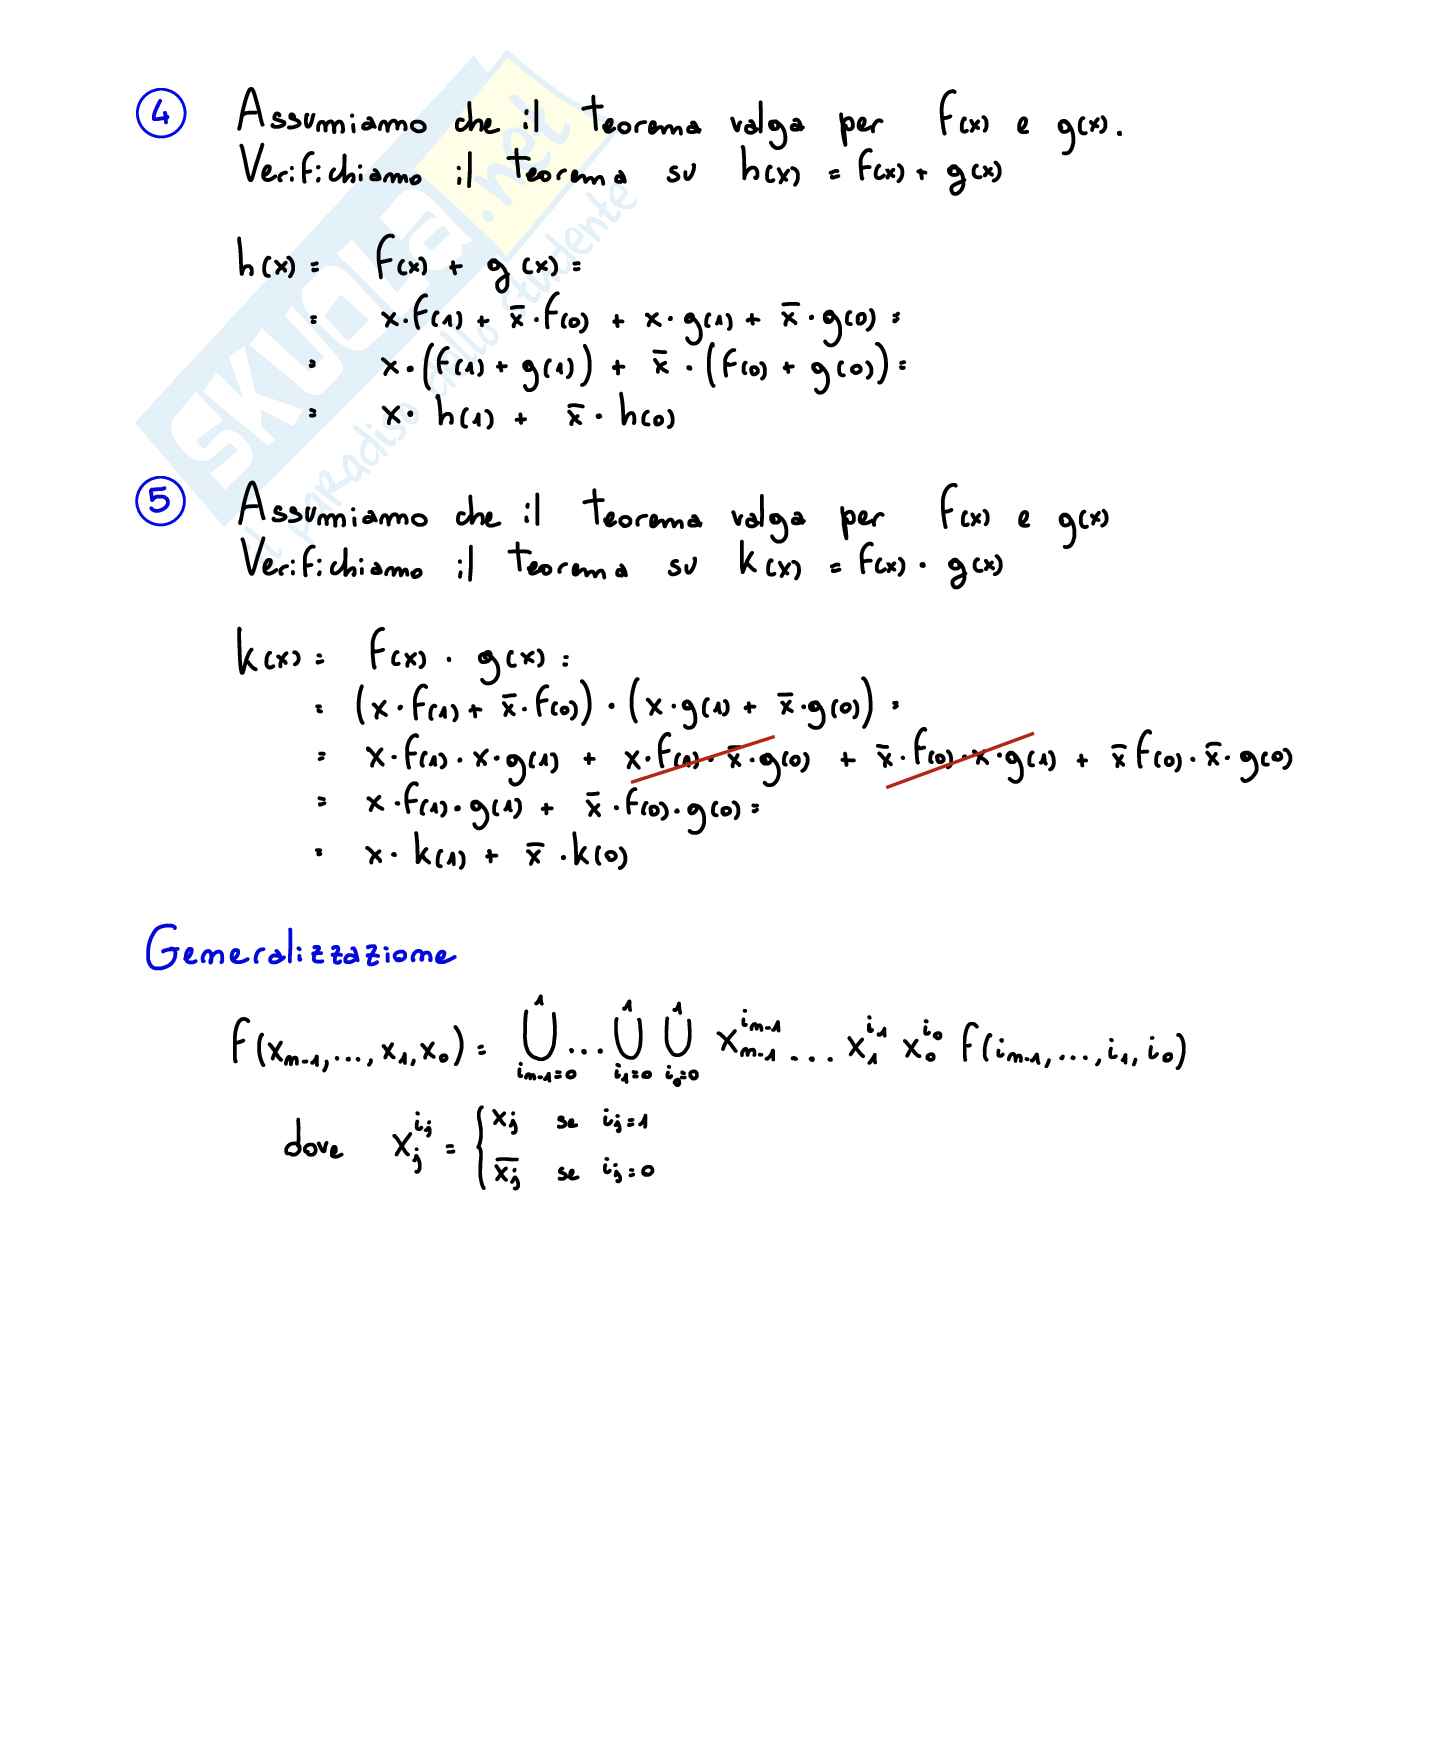 ④ Assumiamo che il teorema valga per f(x) e g(x).
Verifichiamo il teorema su h(x) = f(x) + g(x)
h(x) = f(x) + g(x) =
= x·f(1) + x̄·f(0) + x·g(1) + x̄·g(0) =
= x·(f(1) + g(1)) + x̄·(f(0) + g(0)) =
= x·h(1) + x̄·h(0)
⑤ Assumiamo che il teorema valga per f(x) e g(x)
Verifichiamo il teorema su k(x) = f(x) · g(x)
k(x) = f(x) · g(x) =
= (x·f(1) + x̄·f(0)) · (x·g(1) + x̄·g(0)) =
= x·f(1)·x·g(1) + x·f(1)·x̄·g(0) + x̄·f(0)·x·g(1) + x̄f(0)·x̄·g(0)
= x·f(1)·g(1) + x̄·f(0)·g(0) =
= x·k(1) + x̄·k(0)
Generalizzazione
f(x_{n-1},...,x_1,x_0) = ⋃_{i_{n-1}=0}^{1} ... ⋃_{i_1=0}^{1} ⋃_{i_0=0}^{1} x_{n-1}^{i_{n-1}} ... x_1^{i_1} x_0^{i_0} f(i_{n-1},...,i_1,i_0)
dove x_j^{i_j} = { x_j se i_j=1
x̄_j se i_j=0
SKUOLA.net
il paradiso dello studente